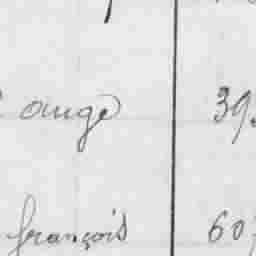 ange 39
françois 60